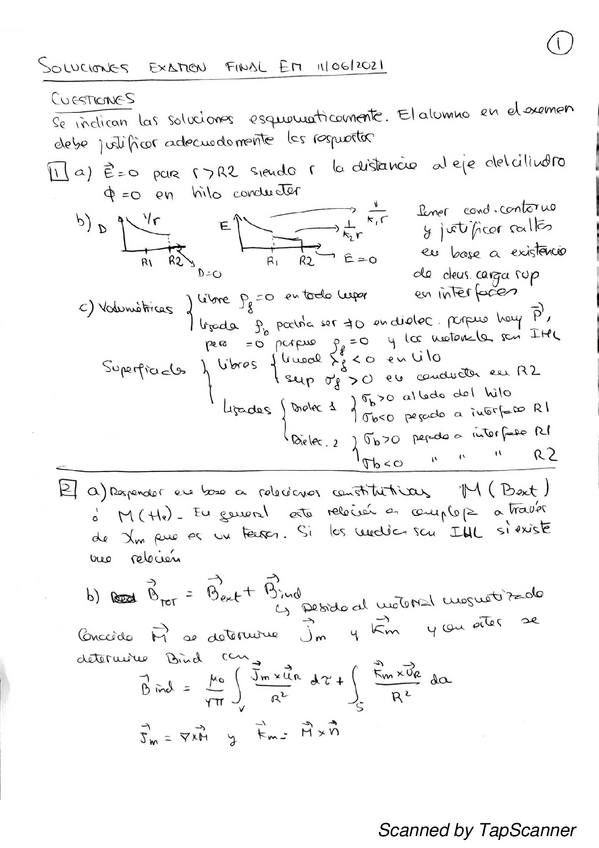 1
SOLUCIONES EXAMEN FINAL EM 11/06/2021
CUESTIONES
Se indican las soluciones esquematicamente. El alumno en el examen
debe justificar adecuadamente las respuestas
1 a) E⃗=0 para r>R2 siendo r la distancia al eje del cilindro
Φ=0 en hilo conductor
b) D 1/r R1 R2 D=0
E 1/k₁r 1/k₂r R1 R2 E=0
Poner cond. contorno
y justificar saltos
en base a existencia
de dens. carga sup
en interfaces
c) Volumétricas { libre ρf=0 en todo lugar
ligada ρb podría ser ≠0 en dielec. porque hay P⃗,
pero =0 porque ρf=0 y los materiales son IHL
Superficiales { libres { lineal λf<0 en hilo
sup σf>0 en conductor en R2
ligadas { Dielec 1 { σb>0 al lado del hilo
σb<0 pegado a interfase R1
Dielec. 2 { σb>0 pegado a interfase R1
σb<0 " " " R2
2 a) Responder en base a relaciones constitutivas M(Bext)
ó M(H). En general esta relación es compleja a través
de Xm que es un tensor. Si los medios son IHL si existe
una relación
b) B⃗TOT = B⃗ext + B⃗ind
↳ Debido al material magnetizado
Conocido M⃗ se determina J⃗m y K⃗m y con estos se
determina Bind con
B⃗ind = μ₀/4π ∫V J⃗m×u⃗R/R² dτ + ∫S K⃗m×u⃗R/R² da
J⃗m = ∇×M⃗ y K⃗m = M⃗×n⃗
Scanned by TapScanner